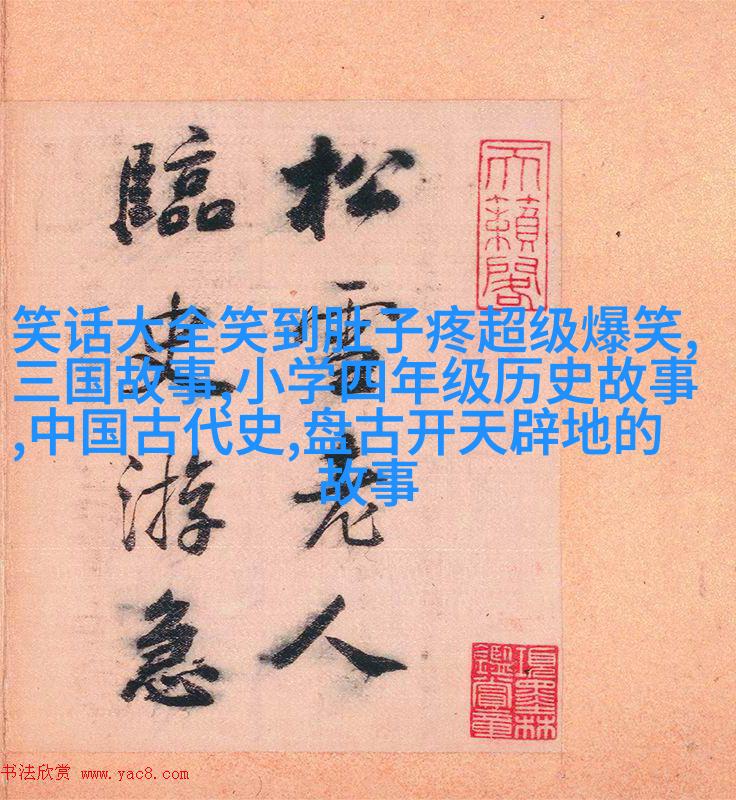 天籟閣
松雪老人
臨史游急
笑话大全笑到肚子疼超级爆笑,
三国故事,小学四年级历史故事
,中国古代史,盘古开天辟地的
故事
項墨林
鑑賞章
书法欣赏 www.yac8.com